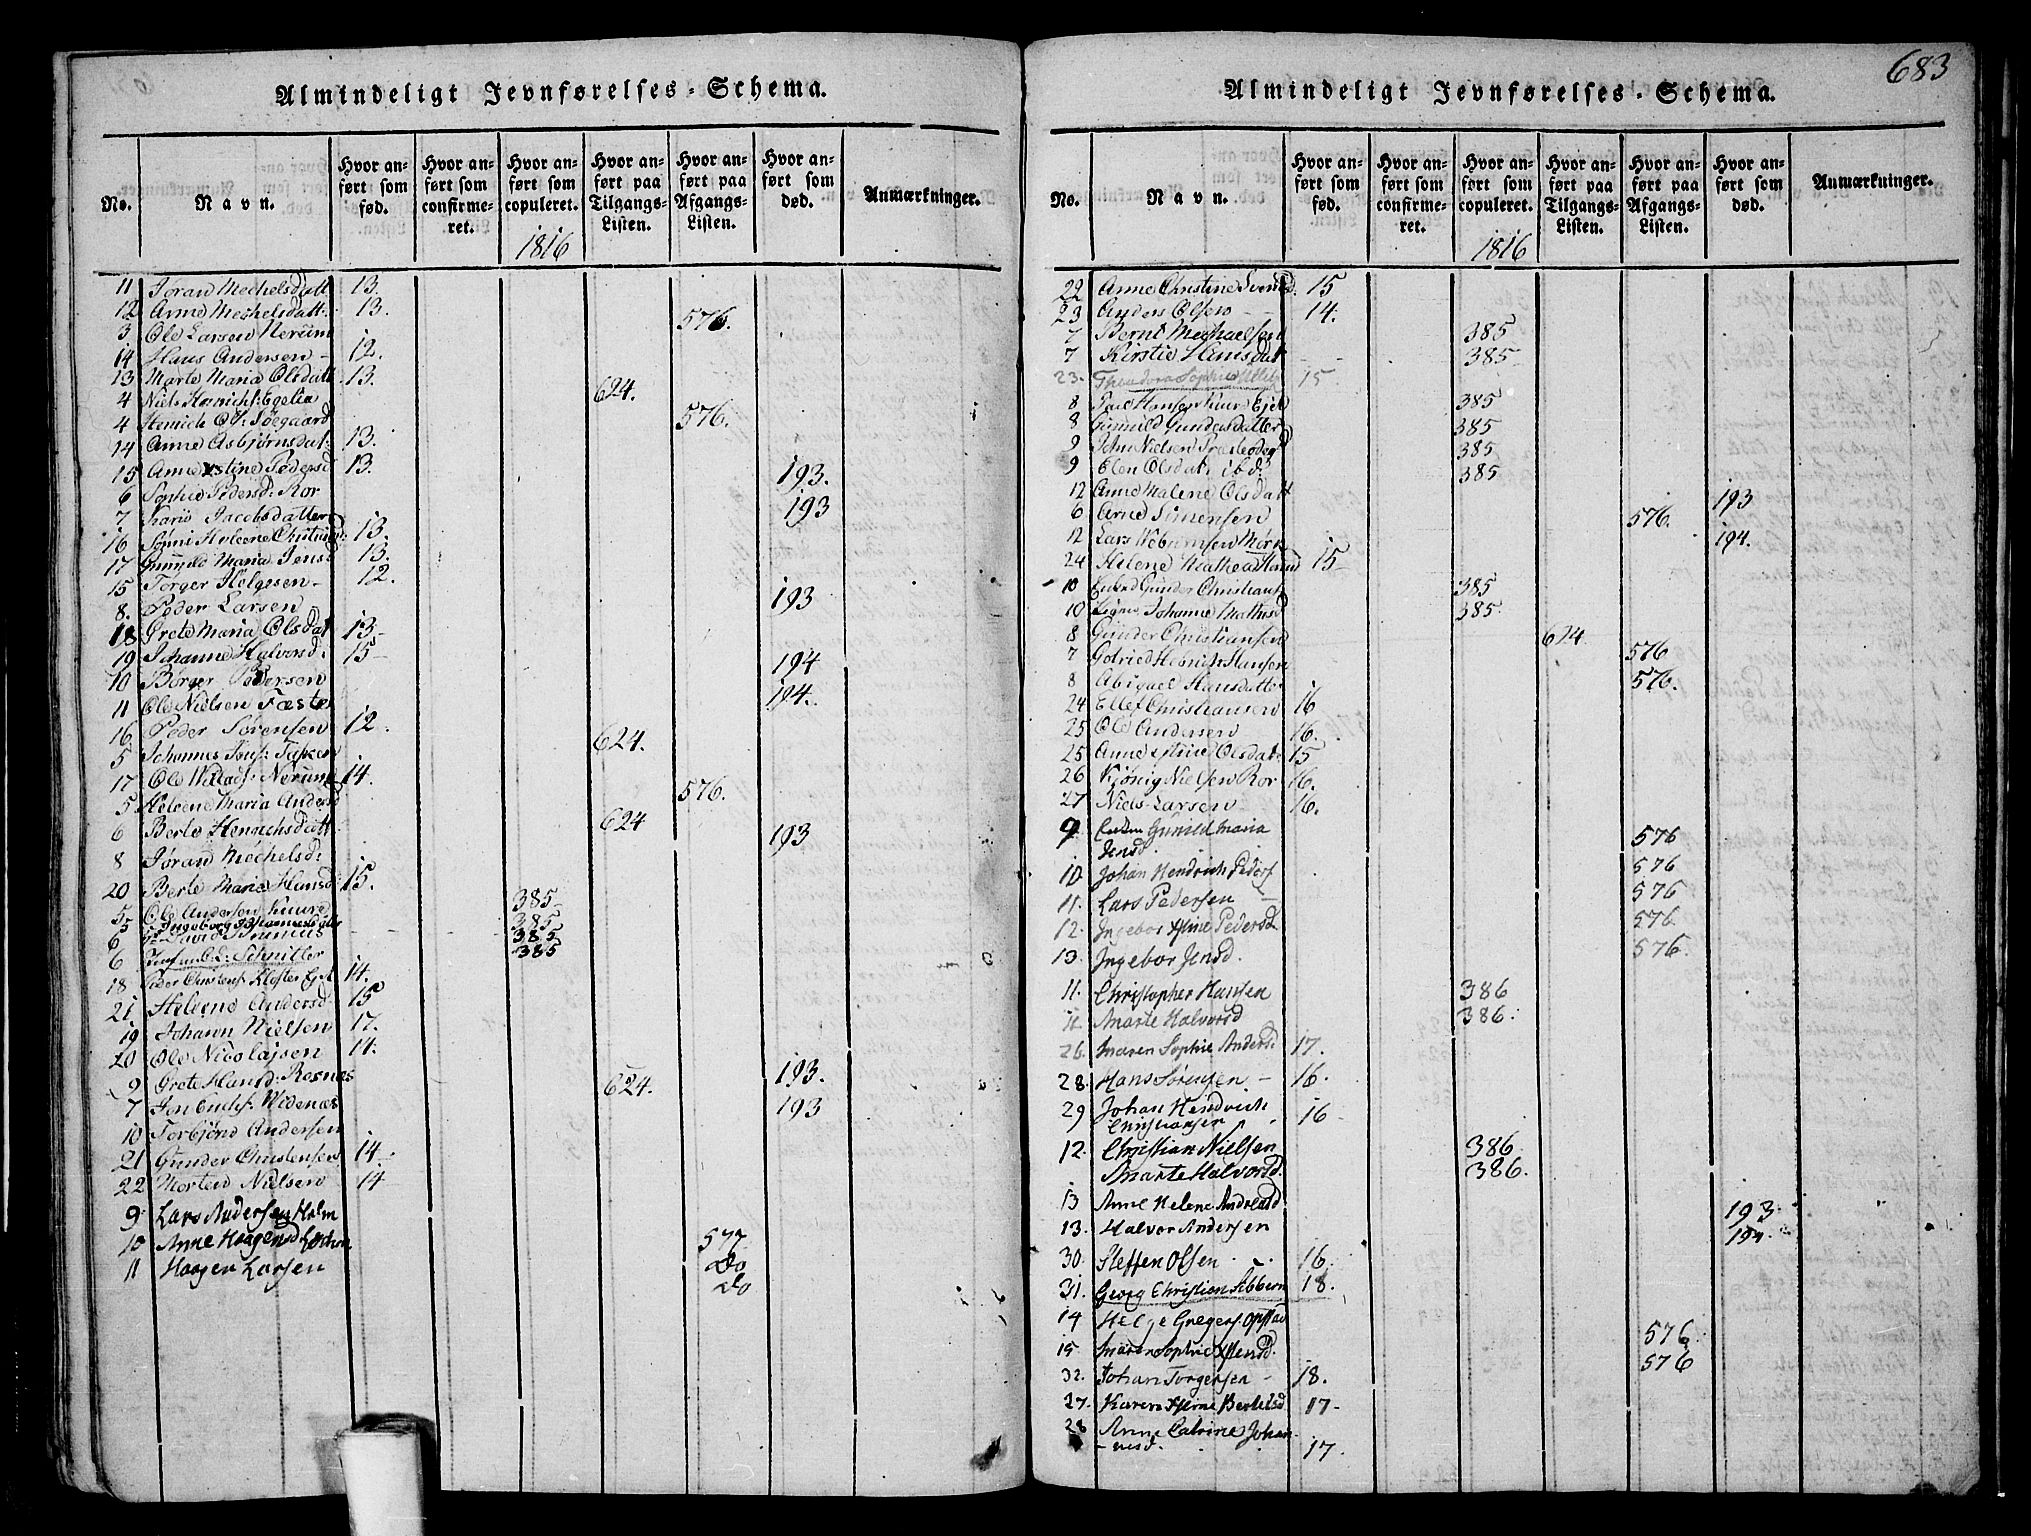 Almindeligt Jevnførelses-Schema.
No. Navn. Hvor anført som fød. Hvor anført som confirmeret. Hvor anført som copuleret. Hvor anført paa Tilgangs-Listen. Hvor anført paa Afgangs-Listen. Hvor anført som død. Anmærkninger.
1816
11 Jøran Mechelsdatt. 13.
12 Anne Mechelsdatt. 13.
3 Ole Larsen Nerum 576.
14 Hans Andersen - 12.
13 Marte Maria Olsdatt. 13.
4 Niels Henrichs: Egelia 624.
4 Henrich Ol: Søegaard 576.
14 Anne Asbjørnsdat: 13.
15 Anne Xstine Pedersd 13.
6 Sophie Pedersd: Ror 193.
7 Karie Jacobsdatter 193
16 Helene 13.
17 Gunnild Maria Jensd 13.
15 Torger Helgesen - 12.
8. Peder Larsen 193
18 Grete Maria Olsdat 13-
19 Johanne Halvorsd: 15-
10 Børger Pedersen 194
11 Ole Nielsen Fæste 194.
16 Peder Sørensen 12.
5 Johannes 624.
17 Ole Nerum 14.
5 Helene Maria Andersd 576.
6 Berte Hengichsdatt. 624
8 Jøran Mechelsd: 193
20 Berte Maria Hansd: 15.
5 Ole Andersen 385
5 Ingeborg 385
6 David 385
6 Schnitler 385
18 Peder Christens: Kloster 14.
21 Helvene Andersd. 15
19 Johann Nielsen 17.
20 Ole Nicolajsen 14.
9 Grete Hansd: Rosnæs 193.
7 Jen Widenæs 624.
10 Torbjørnd Andersen 193
21 Gunder Christensen 14.
22 Morten Nielsen 14
9 Lars Andersen Holm 577
10 Anne Haagensd do
11 Haagen Larsen do
683
Almindeligt Jevnførelses-Schema.
No. Navn. Hvor anført som fød. Hvor anført som confirmeret. Hvor anført som copuleret. Hvor anført paa Tilgangs-Listen. Hvor anført paa Afgangs-Listen. Hvor anført som død. Anmærkninger.
1816
22 Anne Christine Svends. 15
23 Anders Olsen - 14.
7 Bernt Mechaelsen 385
7 Kirstie Hansdat 385.
23. Theodora Sophie 15
8 Hansen 385
8 Gunnild Gundersdatter 385
9 John Nielsen 385
9 Elen Olsdat: ibd: 385
12 Anne Malene Olsdatt 193
6 Arne Simensen 576.
12 Lars Mørk 194.
24 Helene Mathea 15
10 Gunder Christians 385
10 Signe Johanne 385.
8 Gunder Christiansen 624
7 Gotried Henrich Hansen 576
8 Abigael Hansdatter 576.
24 Ellef Christiansen 16
25 Ole Andersen 16.
25 Anne Xstine Olsdat: 15
26 Kjønig Nielsen Ror 16.
27 Niels Larsen 16.
9 Gunild Maria
Jensd. 576
10 Johan Hendrich Peders 576
11. Lars Pedersen - 576
12. Ingebor Xstine Pedersd. 576
13. Ingebor Jensd. 576.
11. Christopher Hansen 386
11. Marte Halvorsd 386.
26. Maren Sophie Andersd. 17.
28. Hans Sørensen. - 16.
29 Johan Hendrich
Christiansen 16
12. Christian Nielsen 386
Marte Halvorsd. 386.
13 Anne Helene Andreasd. 193
13. Halvor Andersen 194.
30. Steffen Olsen 16.
31. Georg Christian Sibbern 18.
14 Helge Gregers. Opstad 576
15 Maren Sophie 576
32. Johan Torgersen - 18.
27. Karen Xstine Bertelsd 17-
28 Anne Catrine Johan-
nesd. 17.